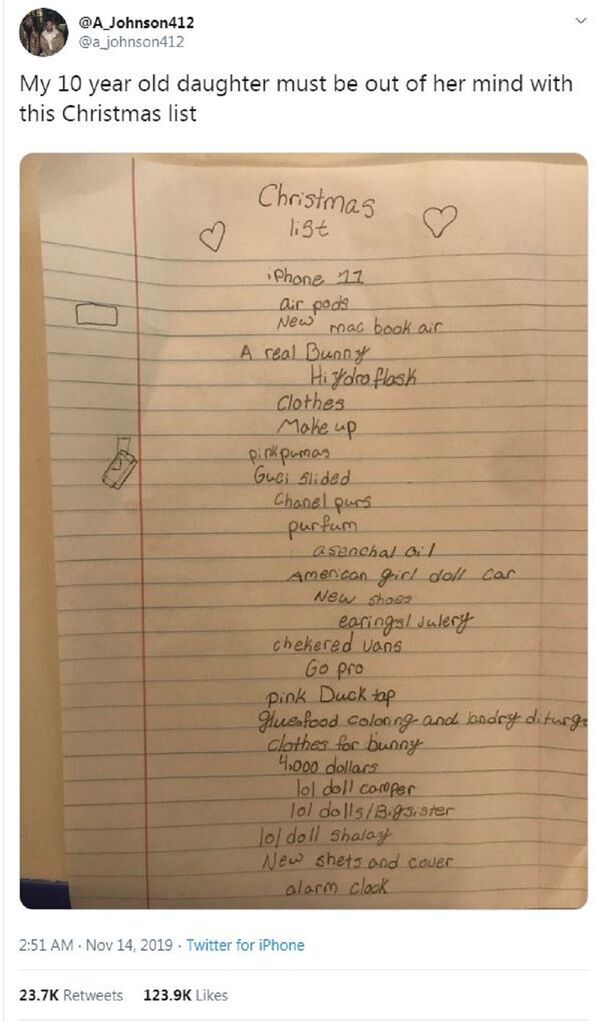 @A_Johnson412
@a_johnson412
My 10 year old daughter must be out of her mind with
this Christmas list
Christmas
list
iPhone 11
air pods
New mac book air
A real Bunny
Hiydroflask
Clothes
Make up
pink pumas
Guci slided
Chanel purs
purfum
asenchal oil
American girl doll car
New shoes
earings/ Julery
chekered vans
Go pro
pink Duck tap
glue food coloring and landry diturge
Clothes for bunny
4,000 dollars
lol doll camper
lol dolls/Bigsister
lol doll shalay
New shets and cover
alarm clock
2:51 AM · Nov 14, 2019 · Twitter for iPhone
23.7K Retweets 123.9K Likes